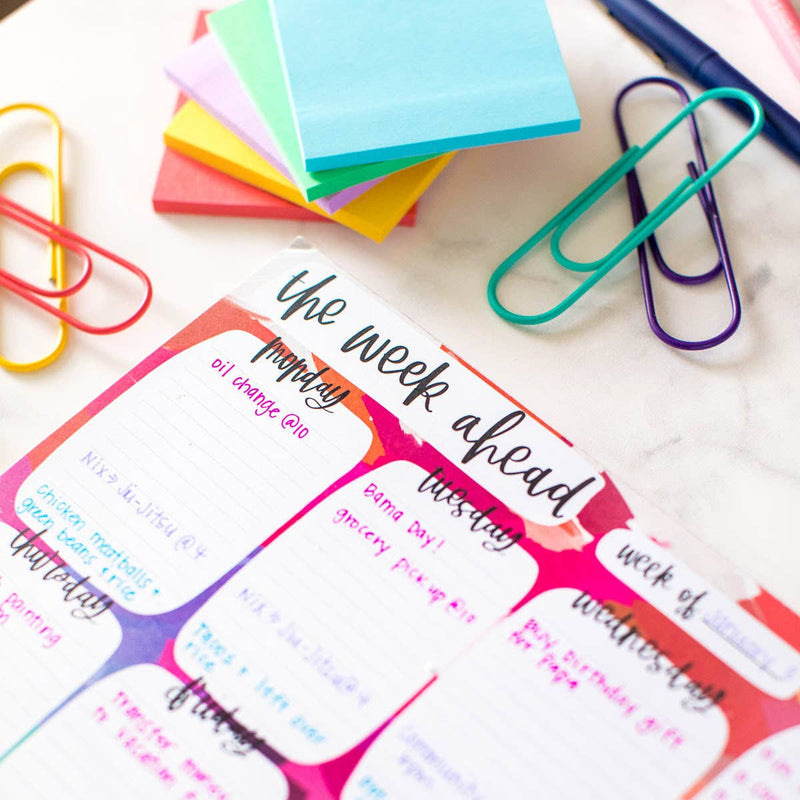 the week ahead
week of January 3
monday
oil change @10
Nix → Ju-Jitsu @ 4
chicken meatballs +
green beans + rice
tuesday
Bama Day!
grocery pick up @10
Nix → Ju-Jitsu @ 4
Tacos + left over
rice
wednesday
Buy Birthday gift
for Papa
thursday
painting
friday
Transfer
to vacation